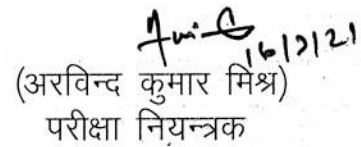 16/9/21
(अरविन्द कुमार मिश्र)
परीक्षा नियन्त्रक